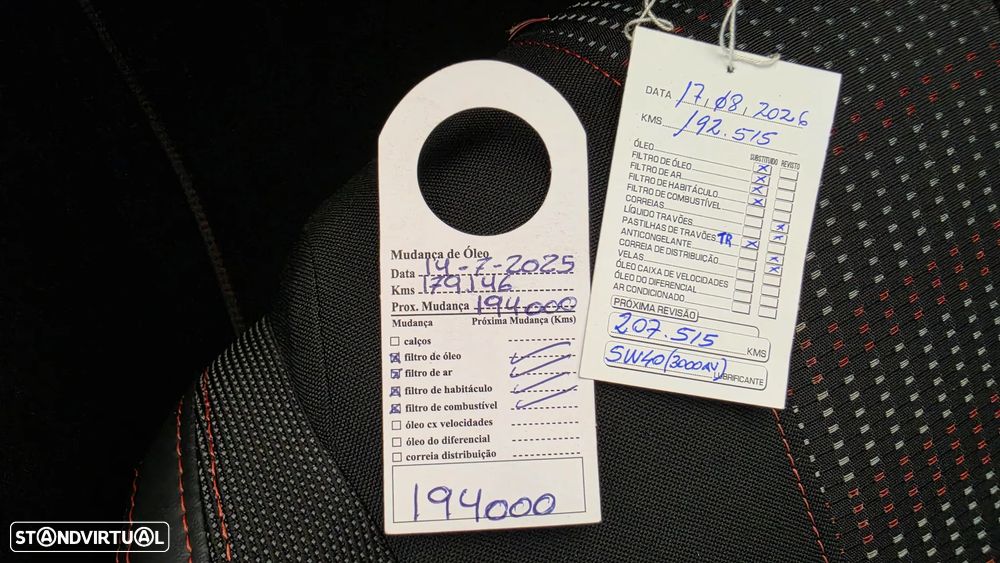 Mudança de Óleo
Data 14-7-2025
Kms 179146
Prox. Mudança 194000
Mudança Próxima Mudança (Kms)
calços
filtro de óleo
filtro de ar
filtro de habitáculo
filtro de combustível
óleo cx velocidades
óleo do diferencial
correia distribuição
194000
DATA 17, 08, 2026
KMS 192.515
SUBSTITUIDO REVISTO
ÓLEO
FILTRO DE ÓLEO
FILTRO DE AR
FILTRO DE HABITÁCULO
FILTRO DE COMBUSTÍVEL
CORREIAS
LÍQUIDO TRAVÕES
PASTILHAS DE TRAVÕES TR
ANTICONGELANTE
CORREIA DE DISTRIBUIÇÃO
VELAS
ÓLEO CAIXA DE VELOCIDADES
ÓLEO DO DIFERENCIAL
AR CONDICIONADO
PRÓXIMA REVISÃO
207.515 KMS
5W40 (3000 RV) LUBRIFICANTE
STANDVIRTUAL